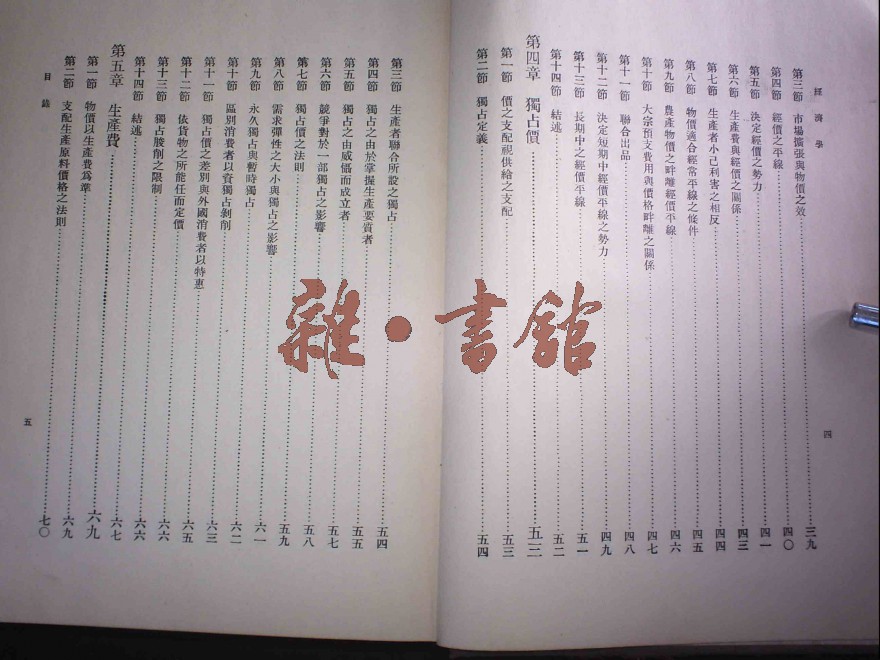 經濟學
第三節　市場擴張與物價之效……三九
第四節　經價之平線……四〇
第五節　決定經價之勢力……四一
第六節　生產費與經價之關係……四三
第七節　生產者小己利害之相反……四四
第八節　物價適合經常平線之條件……四五
第九節　農產物價之畔離經價平線……四六
第十節　大宗預支費用與價格畔離之關係……四七
第十一節　聯合出品……四八
第十二節　決定短期中經價平線之勢力……四九
第十三節　長期中之經價平線……五一
第十四節　結述……五二
第四章　獨占價……五三
第一節　價之支配視供給之支配……五三
第二節　獨占定義……五四
四
第三節　生產者聯合所設之獨占……五四
第四節　獨占之由於掌握生產要質者……五五
第五節　獨占之由威偪而成立者……五七
第六節　競爭對於一部獨占之影響……五七
第七節　獨占價之法則……五八
第八節　需求彈性之大小與獨占之影響……五九
第九節　永久獨占與暫時獨占……六一
第十節　區別消費者以資獨占剝削……六二
第十一節　獨占價之差別與外國消費者以特惠……六三
第十二節　依貨物之所能任而定價……六五
第十三節　獨占朘削之限制……六六
第十四節　結述……六六
第五章　生產費……六七
第一節　物價以生產費爲準……六九
第二節　支配生產原料價格之法則……六九
目錄……七〇
五
雜·書館